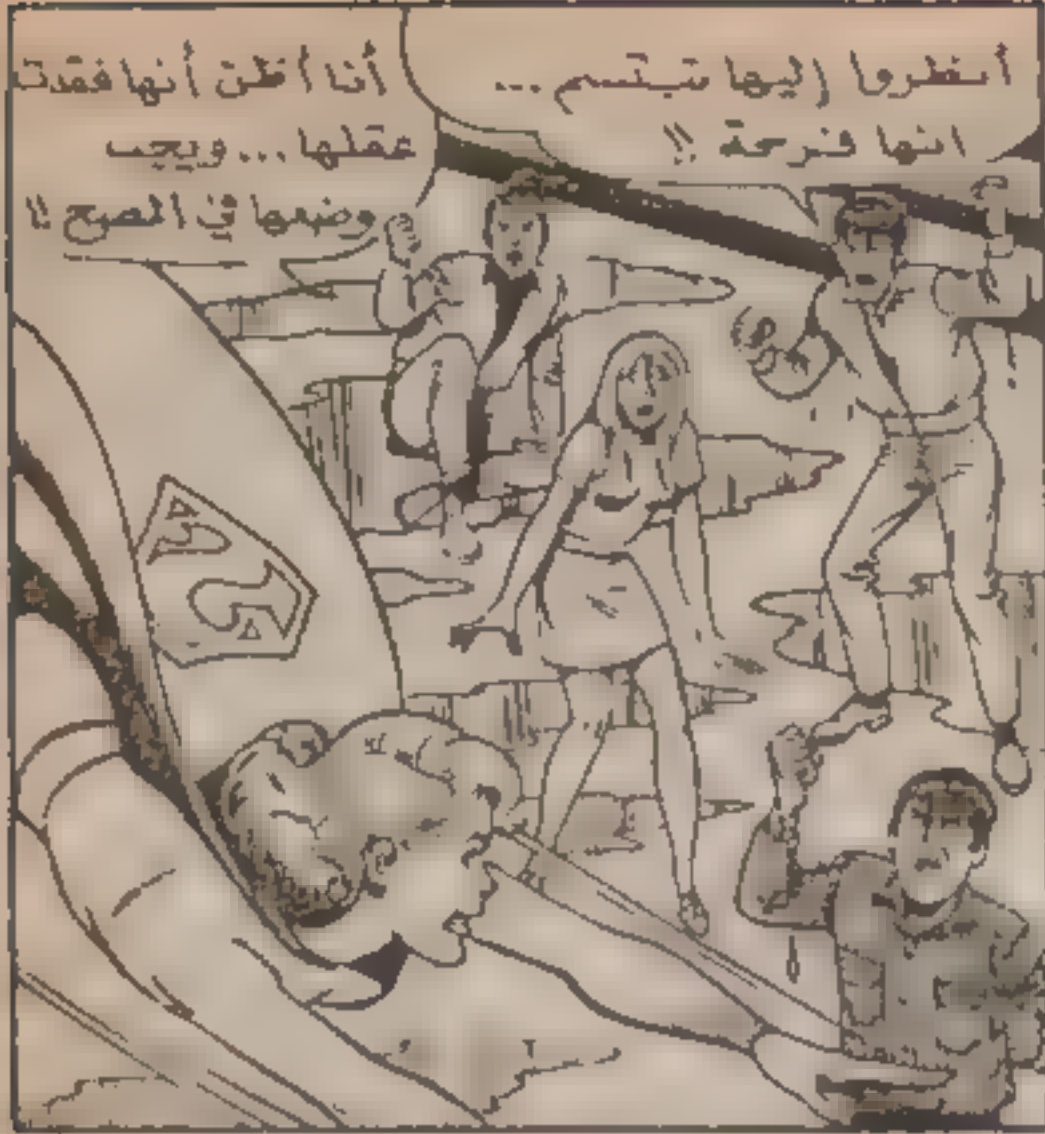 أنظروا إليها تبتسم...
انها فرحة !!
أنا أظن أنها فقدت
عقلها... ويجب
وضعها في المصح !!